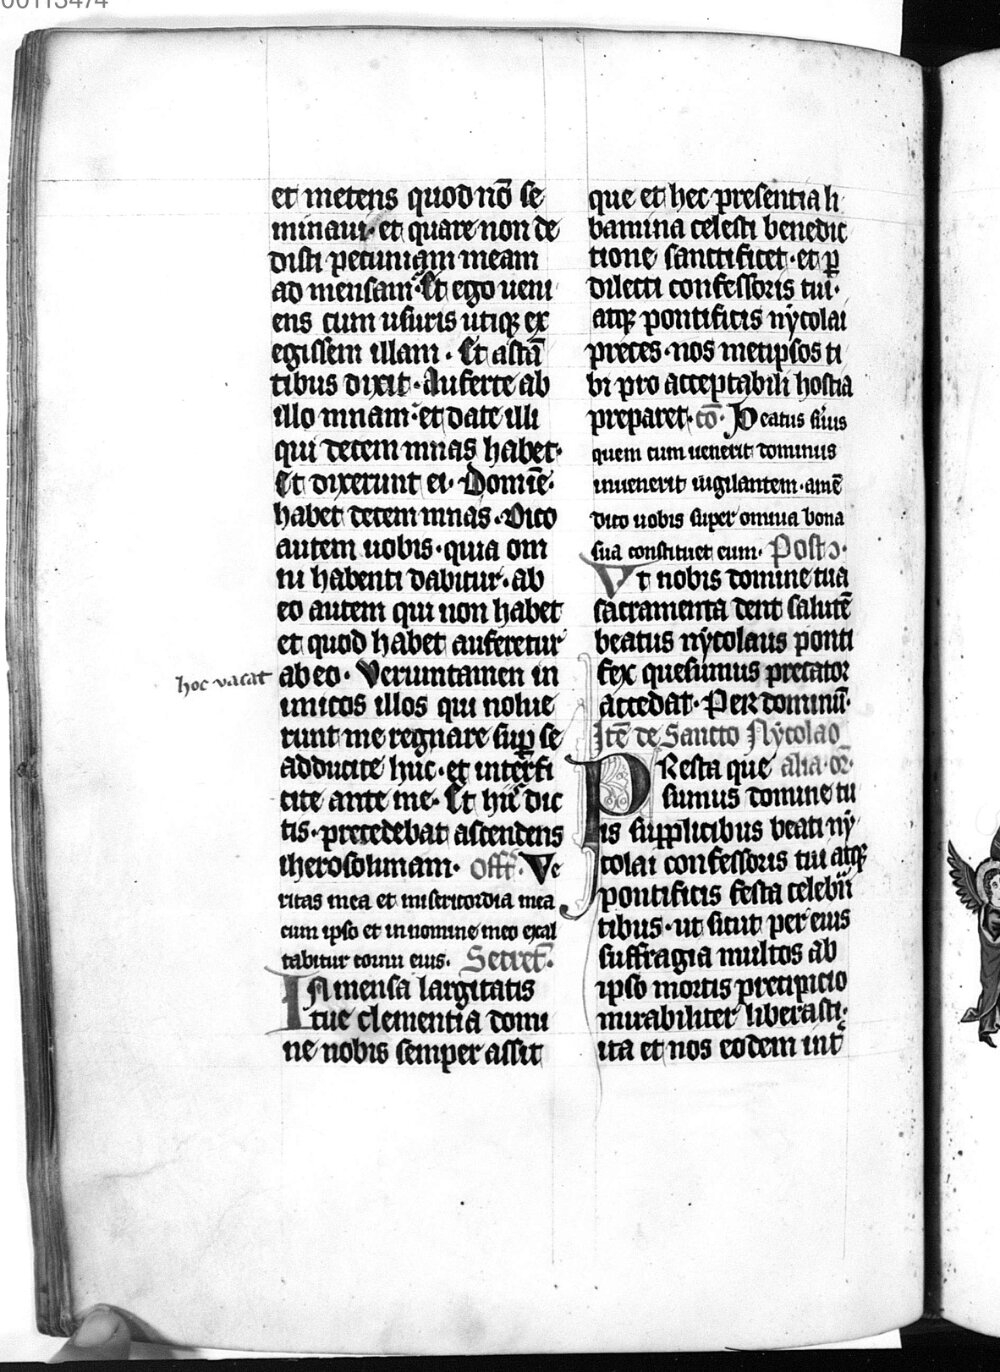 00113474
et metens quod nō se
minaui· et quare non de
disti pecuniam meam
ad mensam· Et ego ueni
ens cum usuris utiqꝫ ex
egissem illam· Et astā
tibus dixit· Auferte ab
illo mnam· et date illi
qui decem mnas habet·
Et dixerunt ei· Domīe·
habet decem mnas· Dico
autem uobis· quia om
ni habenti dabitur· ab
eo autem qui non habet
et quod habet auferetur
hoc vacat
ab eo· Veruntamen in
imicos illos qui nolue
runt me regnare suꝑ se
adducite huc· et interfi
cite ante me· Et hiis dic
tis· precedebat ascendens
iherosolimam· Off̄· Ve
ritas mea et misericordia mea
cum ipso et in nomine meo exal
tabitur cornu eius· Secret̄·
INmensa largitatis
tue clementia domi
ne nobis semper assit
que et hec presentia li
bamina celesti benedic
tione sanctificet· et ꝑ
dilecti confessoris tui·
atqꝫ pontificis nẏcolai
preces· nos metipsos ti
bi pro acceptabili hostia
preparet· cō· Beatus s͛uus
quem cum uenerit dominus
inuenerit uigilantem· amē
dico uobis super omnia bona
sua constituet eum· Postↄ·
Vt nobis domine tua
sacramenta dent salutē
beatus nẏcolaus ponti
fex quesumus precator
accedat· Per dominū·
Itē de Sancto Nẏcolao
PResta que alia· or̄·
sumus domine tu
is supplicibus beati nẏ
colai confessoris tui atqꝫ
pontificis festa celebrā
tibus· ut sicut per eius
suffragia multos ab
ipso mortis precipicio
mirabiliter liberasti·
ita et nos eodem int͛